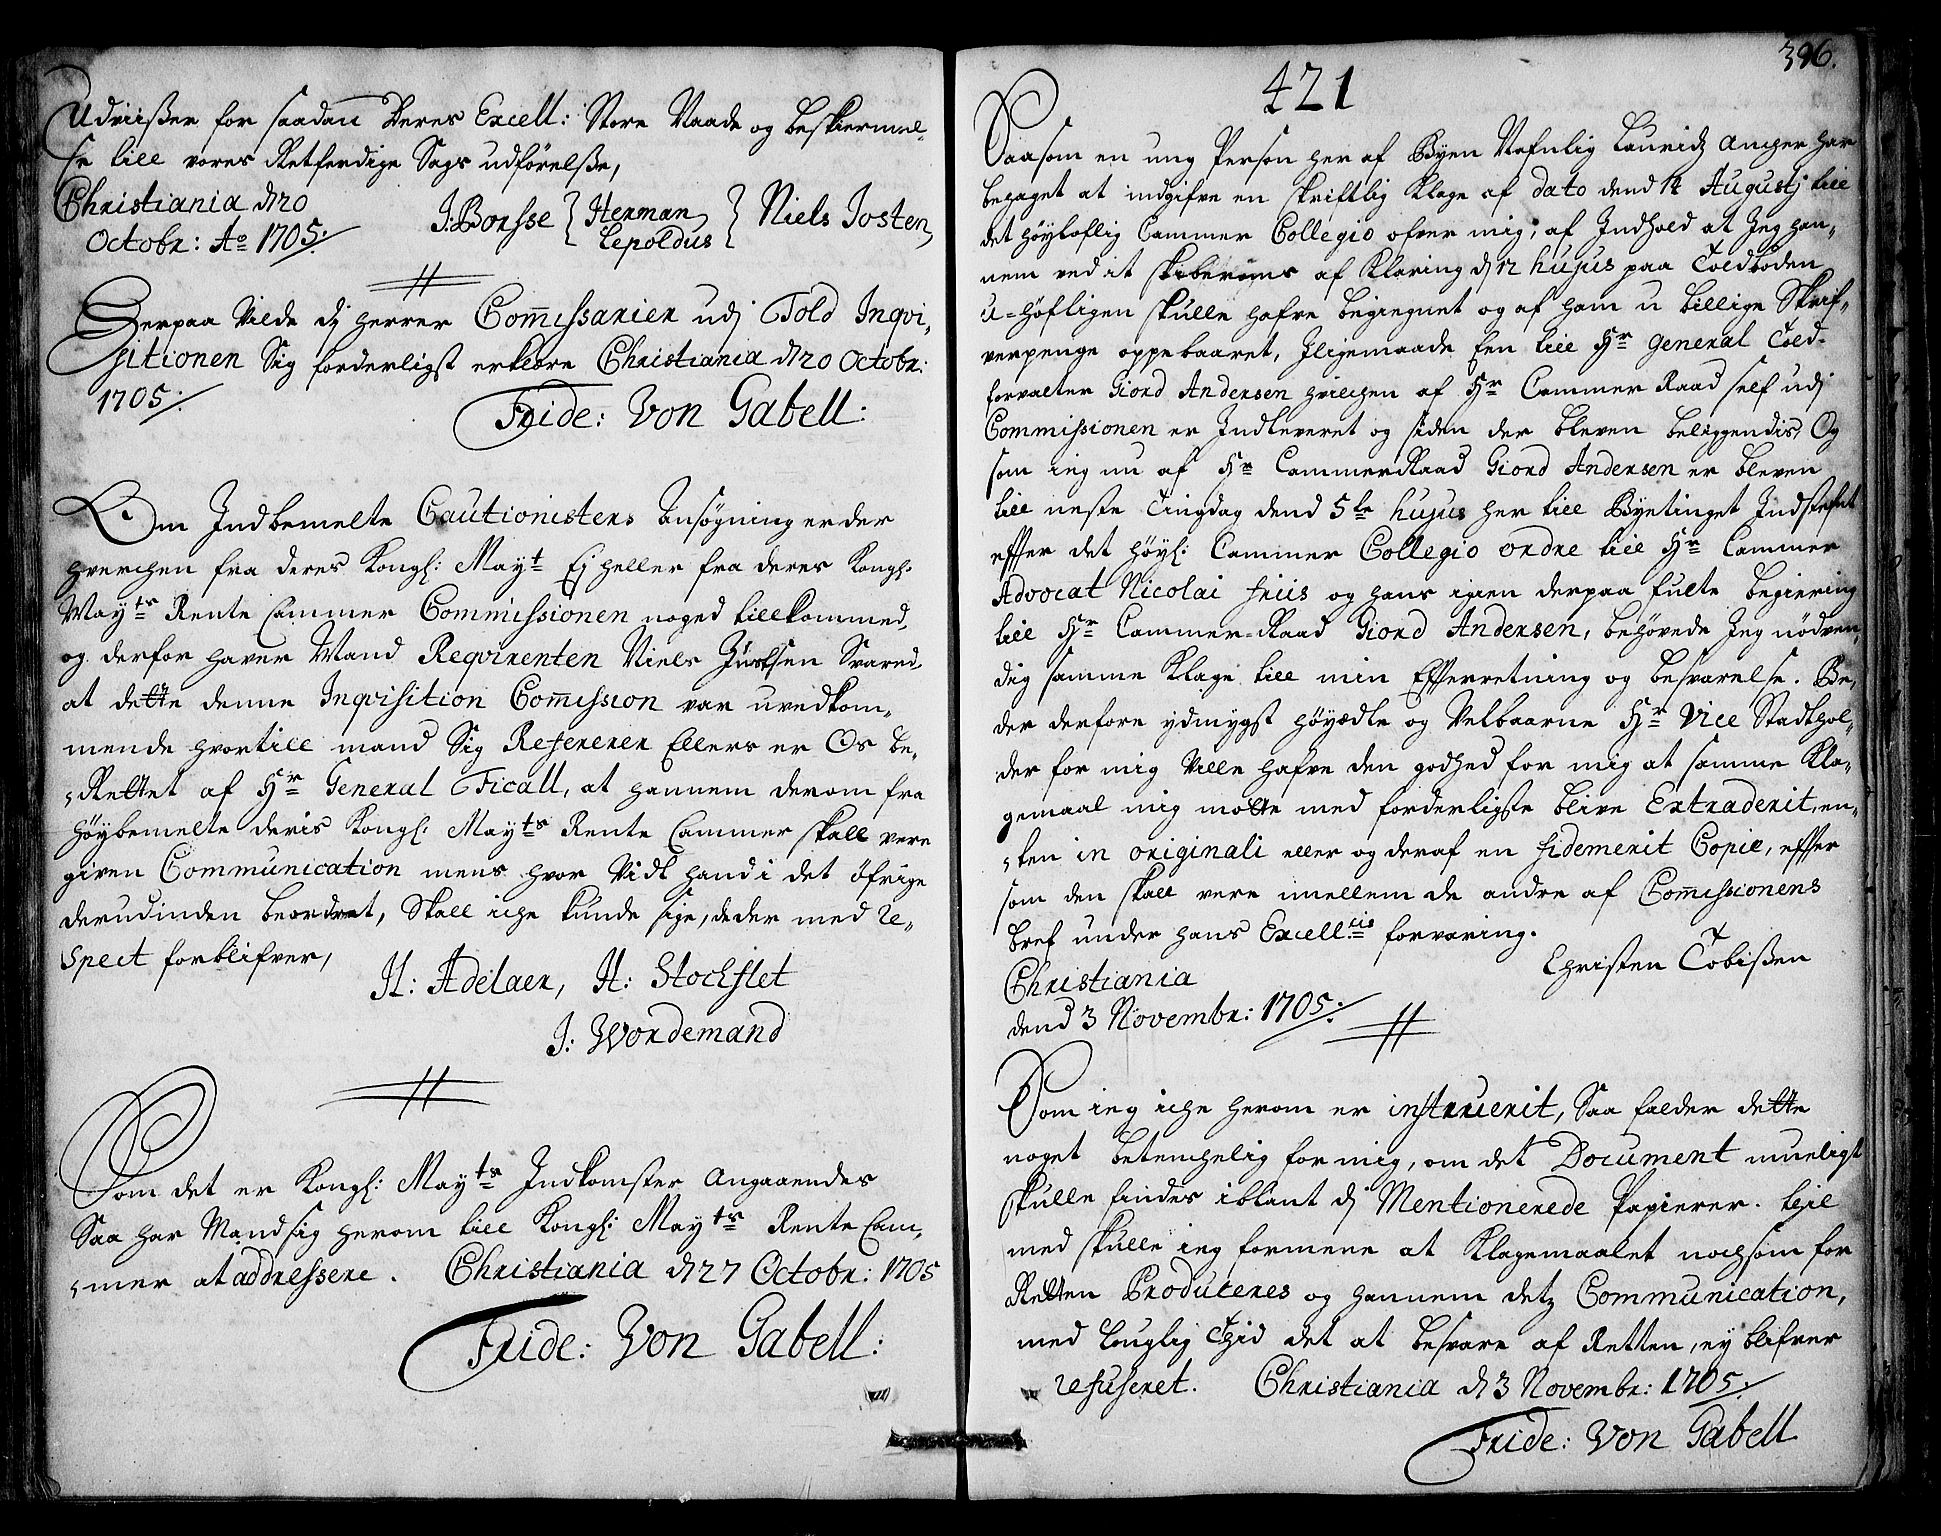 Udviißer for saadan Deres Excell: Store Naade og beskiermel-
se till vores Retferdige Sags udførelße,
Christiania d 20
Octobr: Ao 1705 ./.
J: Borsse { Herman Lepoldus } Niels Josten,
Herpaa Vilde dj herrer Commissarier udj Told Inqvi-
sitionen Sig forderligst erklære Christiania d 20 Octobr:
1705 ./.
Fride: Von Gabell:
Om Indbemelte Cautionisters Ansøgning er der
hverchen fra deres Kongl: Mayt Ej heller fra deres Kongl:
Mayts Rente Cammer Commissionen noged tillkommed,
og derfor haver Mand Reqvirenten Niels Justsen Svared
at dette denne Inqvisition Commission var uvedkom-
mende hvortill mand Sig Refererer Ellers er Os be-
Rettet af Hr General Ficall, at hannem derom fra
høybemelte deris Kongl: Mayts Rente Cammer skall vere
given Communication mens hvor Vidt hand i det öfrige
derudinden beordret, Skall iche kunde sige, de der med Re-
spect forblifver,
H: Adelaer, H: Stockflet
J: Wordemand
Som det er Kongl: Mayts Indkomster Angaaendes
Saa har Mand sig herom till Kongl: Mayts Rente Cam-
mer at addressere . Christiania d 27 Octobr: 1705
Fride: Von Gabell:
396.
421
Saasom en ung Person her af Byen Nafnlig Lauridz Ancher har
behaget at indgifve en skriftlig Klage af dato dend 14 Augustj till
det høyloflig Cammer Collegio ofver mig, af Indhold at Jeg han-
nem ved it af Klaring d 12 hujus paa Toldboden
u-høfligen skulle hafve begiegnet og af ham u billige Skrif-
verpenge oppebaaret, Iligemaade Een till Hr General Told-
forvalter Giord Andersen hvilchen af Hr Cammer Raad self udj
Commissionen er Indleveret og siden der bleven beliggendis, Og
som ieg nu af Hr CammerRaad Giord Andersen er bleven
till neste Tingdag dend 5te hujus her till Byetinget Indstefnt
efter det høyl: Cammer Collegio ordre till Hr Cammer
Advocat Nicolai Friis og hans igien derpaa fulte begiering
till Hr Cammer-Raad Giord Andersen, behøvede Jeg nødven-
dig samme Klage till min Efterretning og besvarelse. Be-
der derfore ydmygst høyædle og Velbaarne Hr Vice Stadthol-
der for mig Ville hafve den godhed for mig at samme Kla-
gemaal mig motte med forderligste blive Extraderit, en-
ten in originali eller og deraf en fidemerit Copie, efter
som den skall vere imellem de andre af Commissionens
bref under hans Excellcis forvaring.
Christen Tobißen
Christiania
dend 3 Novembr: 1705 ./.
Som ieg iche herom er instruerit, Saa falder dette
noget betenchelig for mig, om det Document mueligt
skulle findes iblant dj Mentionerede Papierer. Thil
med skulle ieg formene at Klagemaalet nochsom for
Retten Produceres og hannem detz Communication,
med lovglig Thid det at besvare af Retten, ey blifver
refuseret. Christiania d 3 Novembr: 1705 ./.
Fride: Von Gabell